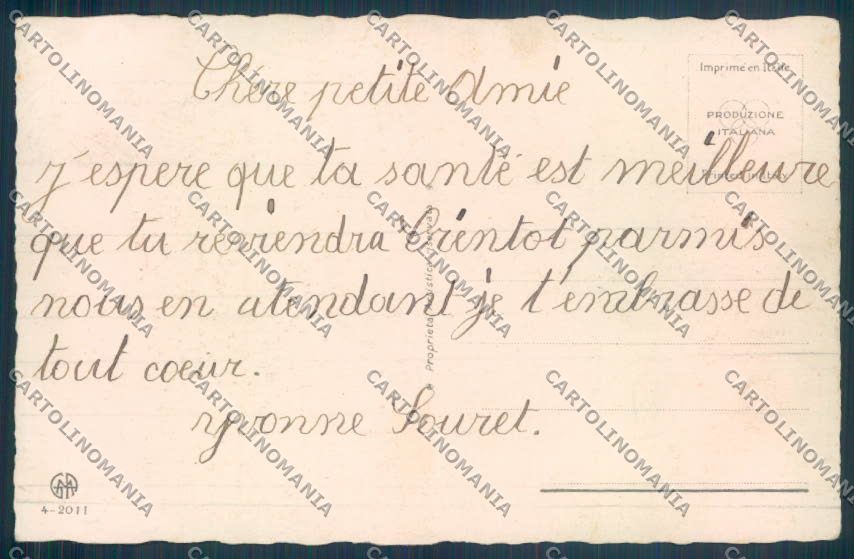 Chére petite Amie
j'espere que ta santé est meilleure
que tu reviendra bientot parmis
nous en atendant je t'embrasse de
tout coeur.
Yvonne Souret.
Imprimé en Italie
PRODUZIONE
ITALIANA
Printed in Italy
Proprietà artistica riservata
4-2011
CARTOLINOMANIA